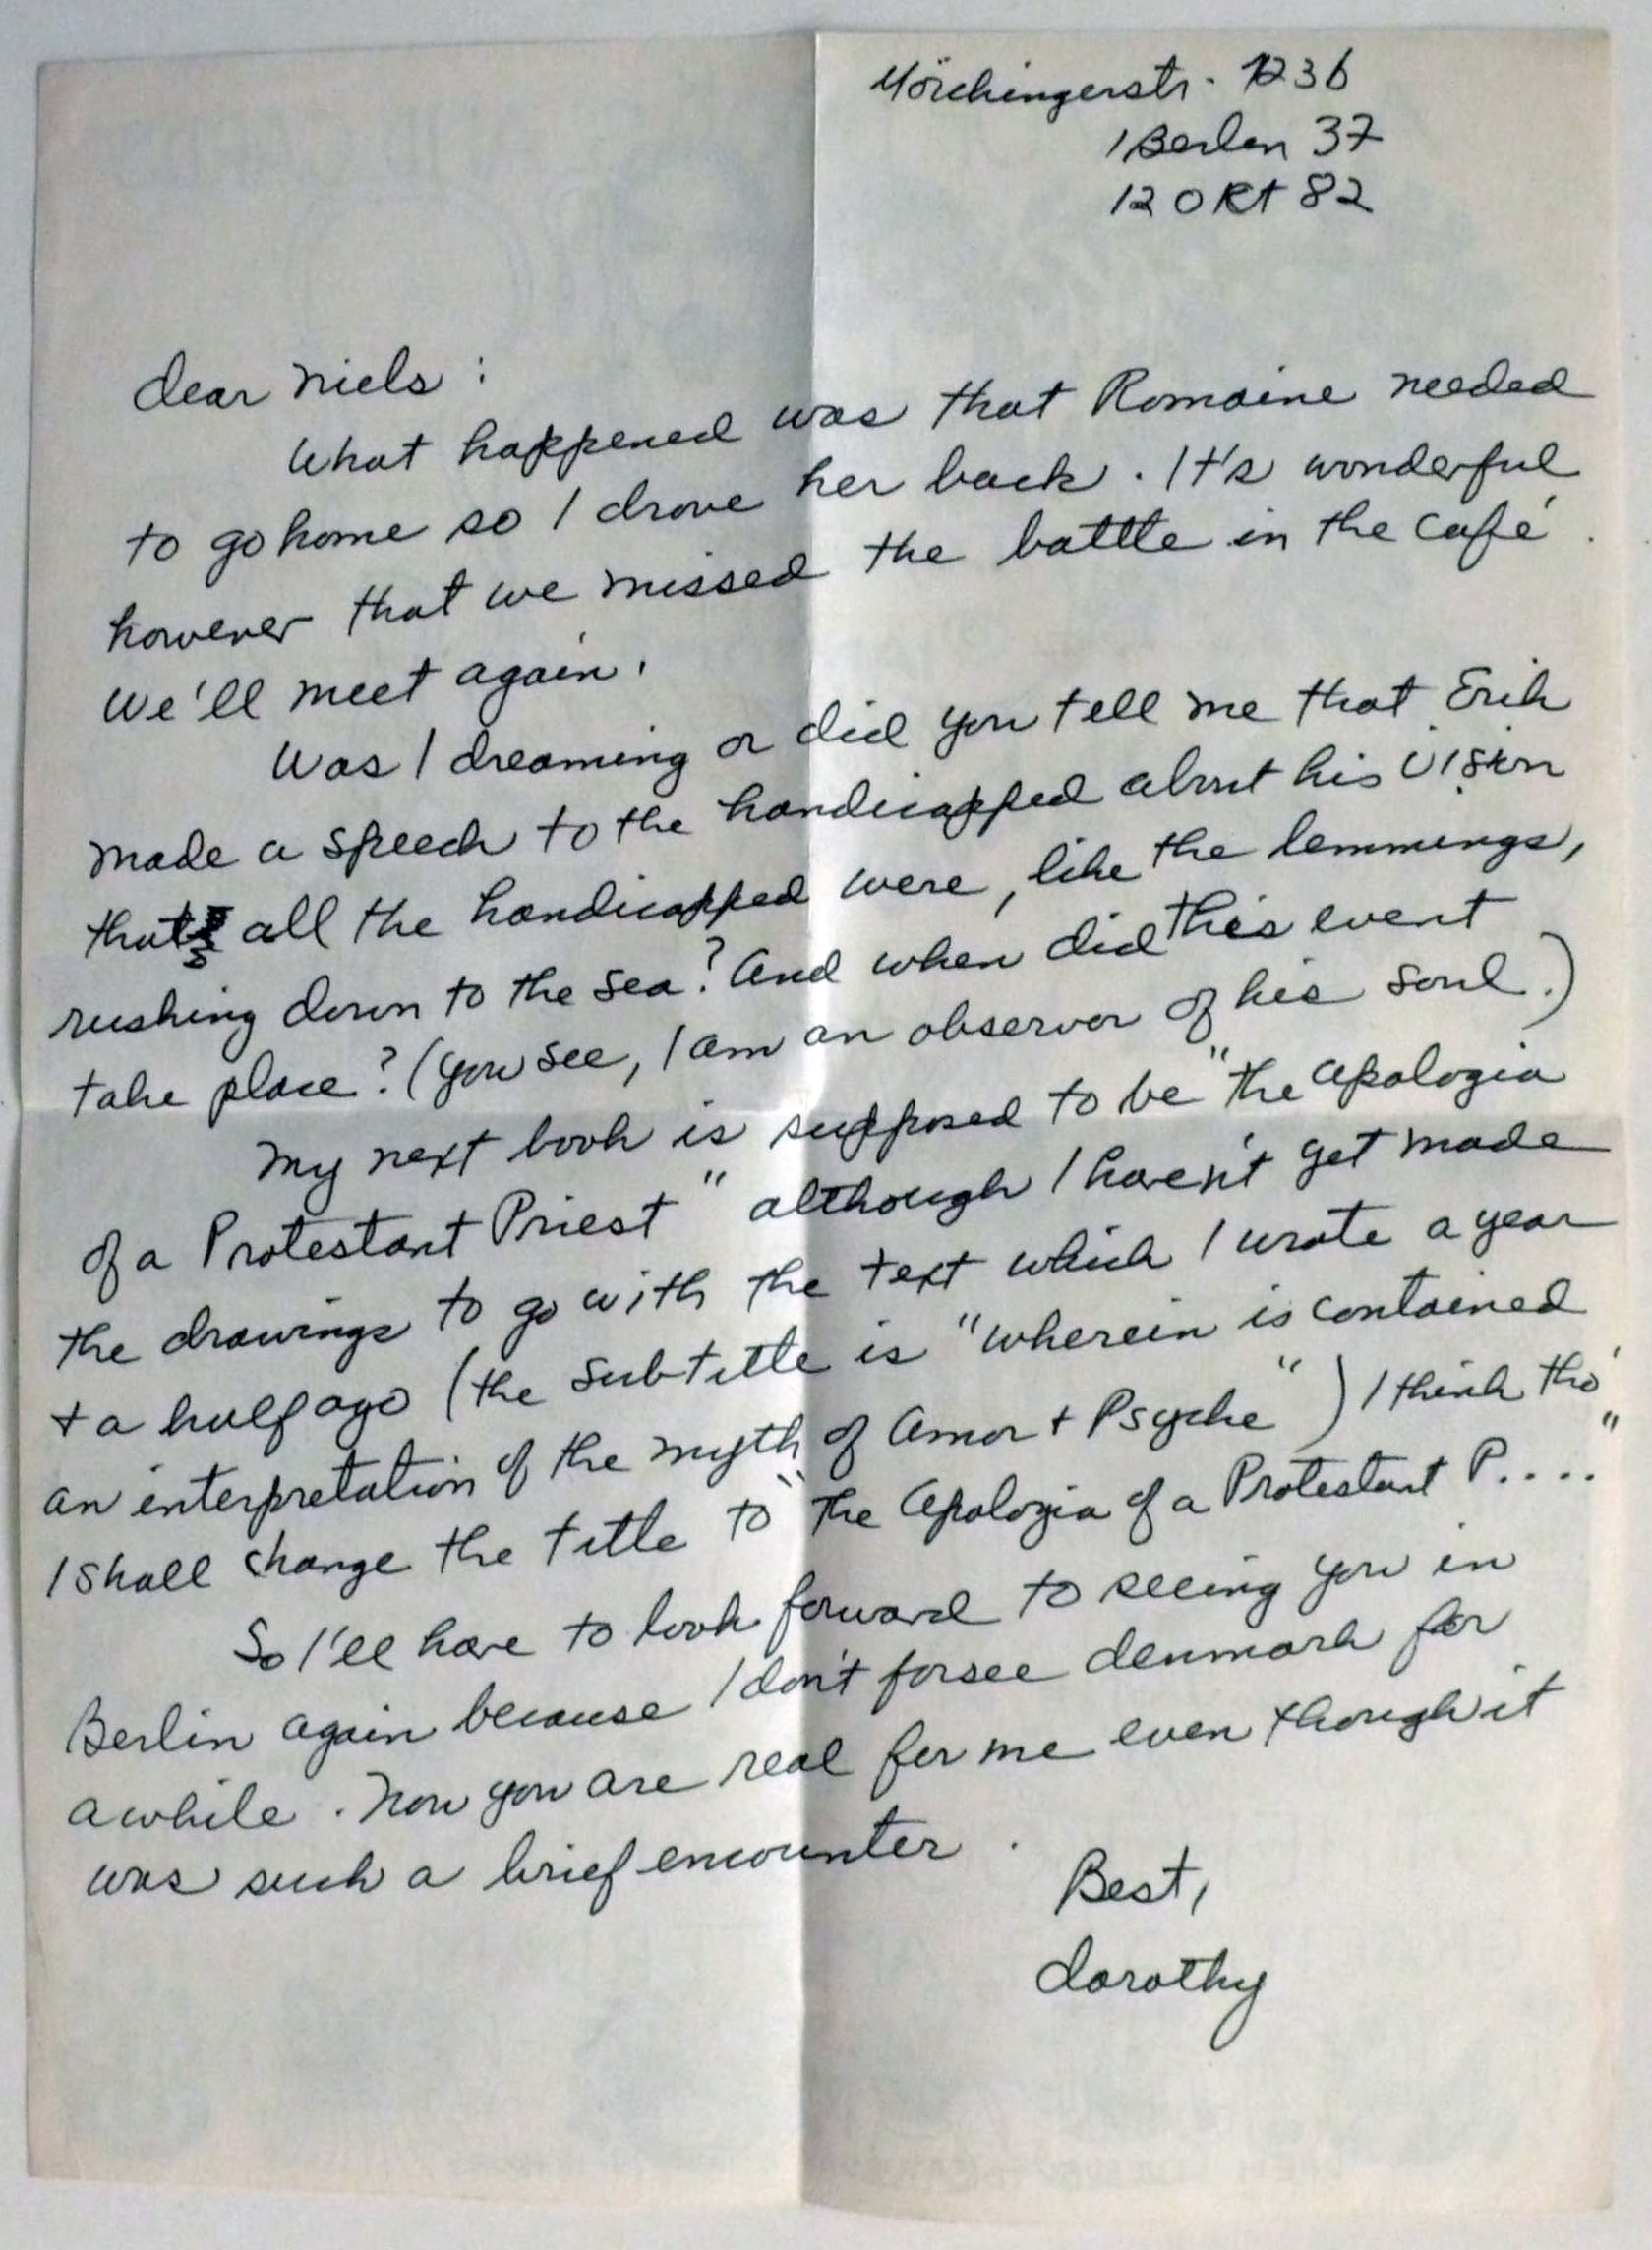 Mörchingerstr. 123b
1 Berlin 37
12 Okt 82
dear Niels :
What happened was that Romaine needed
to go home so I drove her back. It's wonderful
however that we missed the battle in the café.
We'll meet again.
Was I dreaming or did you tell me that Erik
made a speech to the handicapped about his vision
that all the handicapped were, like the lemmings,
rushing down to the sea? And when did this event
take place? (You see, I am an observor of his soul.)
My next book is supposed to be "the Apologia
of a Protestant Priest" although I haven't yet made
the drawings to go with the text which I wrote a year
+ a half ago (the subtitle is "wherein is contained
an interpretation of the myth of Amor + Psyche") I think tho'
I shall change the title to "The Apologia of a Protestant P...."
So I'll have to look forward to seeing you in
Berlin again because I don't forsee denmark for
awhile. Now you are real for me even though it
was such a brief encounter.
Best,
dorothy